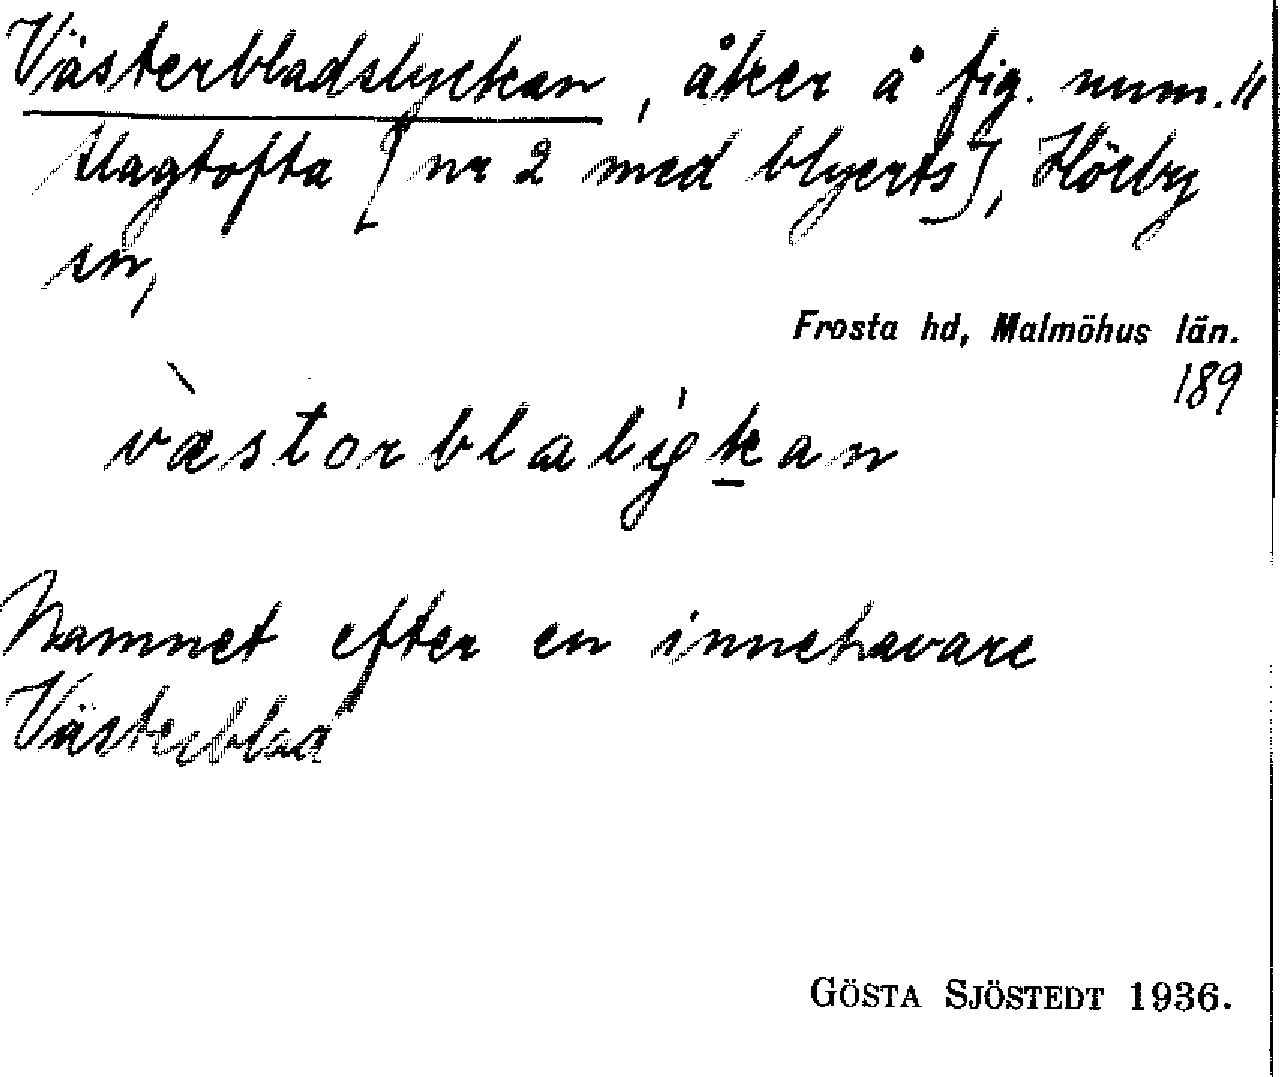 Västerbladslyckan, åker å fig. num. 11
Slagtofta [nr 2 med blyerts], Hörby
sn,
Frosta hd, Malmöhus län.
189
væstorblalykan
Namnet efter en innehavare
Västerblad
GÖSTA SJÖSTEDT 1936.